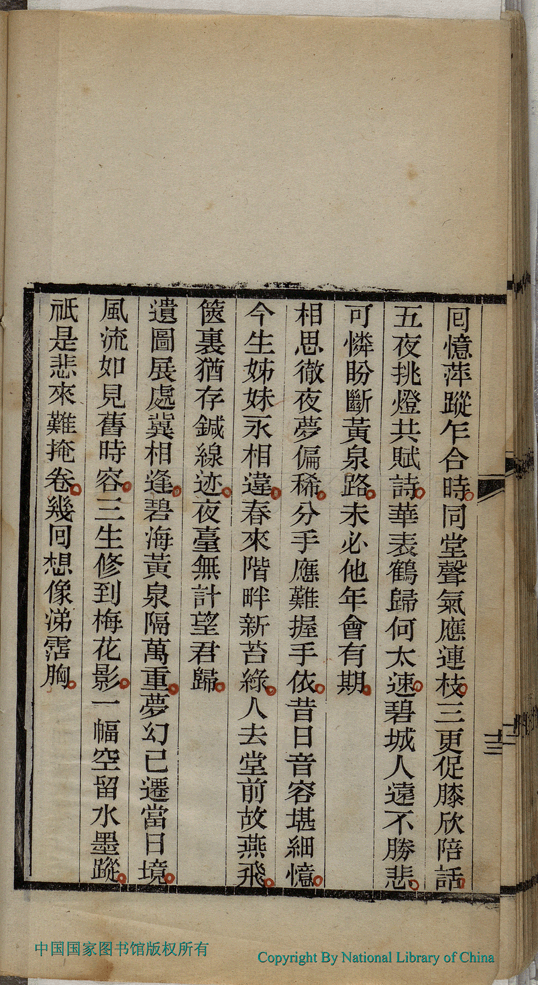 回憶萍蹤乍合時同堂聲氣應連枝三更促膝欣陪話
五夜挑燈共賦詩華表鶴歸何太速碧城人遠不勝悲
可憐盼斷黃泉路未必他年會有期
相思徹夜夢偏稀分手應難握手依昔日音容堪細憶
今生姊妹永相違春來階畔新苔綠人去堂前故燕飛
篋裏猶存鍼線迹夜臺無計望君歸
遺圖展處冀相逢碧海黃泉隔萬重夢幻已遷當日境
風流如見舊時容三生修到梅花影一幅空留水墨蹤
祇是悲來難掩卷幾回想像涕霑胸
中国国家图书馆版权所有
Copyright By National Library of China